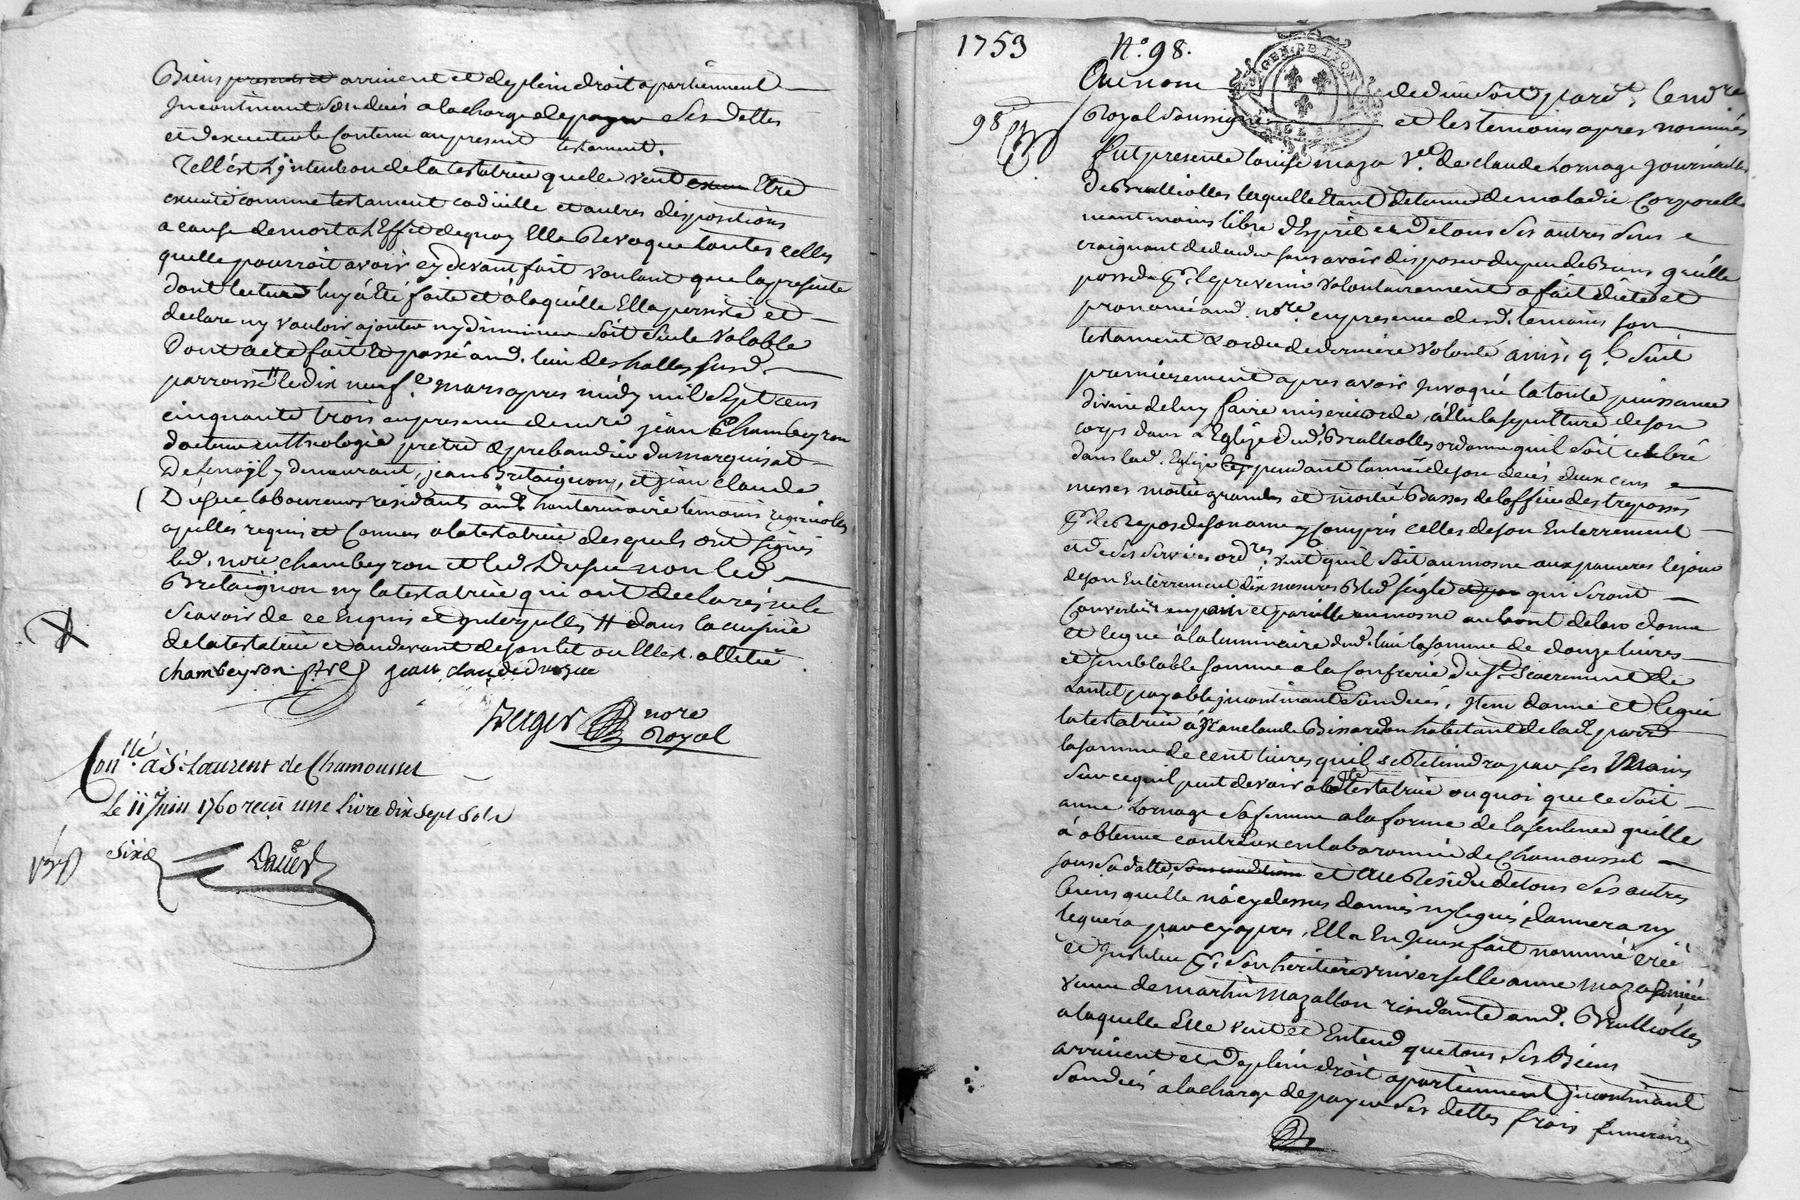 Biens presents et arrivent et de plein droit apartiennent
Incontinant son deces a la charge de payer ses dettes
et dexecuter le Contenu au present testament.
Tell est Lintention de la testatrice quelle veut Etre
executé comme testament codicille et autres dispositions
a cause de mort a L'Effet de quoy Elle Revoque toutes celles
quelle pourroit avoir cy devant fait voulant que la presente
dont lecture luy a été faite et a laquelle Elle persiste et
declare ny vouloir ajouter ny diminuer soit seule valable
Dont acte fait et passé aud. lieu des halles susd.
parroisse le dix neuf.e mars apres midy mil sept cens
cinquante trois en presence de mre jean Chambeyron
docteur en theologie pretre et prebandier du marquisat
De fenoÿl y demeurant, jean Bretaignon, et jean claude
Dusuc laboureurs residants aud. hauterivoire temoins
apellés requis et Connus a la testatrice desquels ont signés
led. mre chambeyron et led Dusuc non led
Bretaignon ny la testatrice qui ont declarés ne le
scavoir de ce Enquis et Interpellés # dans la cuisine
de la testatrice et au devant de son lit ou Elle est allitée
chambeyron ptre jean claude dusuc
Berger nore
Royal
Conllé à St Laurent de Chamousset
Le 11 Juin 1760 reçu une Livre dix sept sols
six d
1753 N.° 98.
98
Au nom de dieu soit pardt. le no.re
Royal soussigné et les temoins apres nommés
fut presente louise maza ve.e de claude Lornage journailler
de Brullioles laquelle Etant detenue de maladie Corporelle
neantmoins libre d'Esprit et de tous ses autres sens
craignant de deceder sans avoir disposer du peu de Biens quélle
possede pr. le prevenir volontairement a fait dicté et
prononcé aud. no.re en presence desd. temoins son
testament & ordre de derniere volonté ainsi q. suit
premierement apres avoir Invoqué la toute puissance
divine de luy faire misericorde, a élu la sepulture de son
corps dans L'Eglize dud. Brullioles ordonne quil soit celebré
dans lad. Eglize pendant l'année de son deces deux cens
messes moitié grandes et moitié Basses de l'office des trepassés
pr. le Repos de son ame y compris celles de son Enterrement
et de ses services ord.res, veut quil soit aumosne aux pauvres le jour
de son Enterrement dix mesures Bled seigle qui seront
Converties en pain et pareille aumosne au bout de lan donne
et legue à la luminaire dud. lieu la somme de douze livres
et semblable somme a la Confrerie du St. Sacrement de
Lautel payable incontinant son deces, Item donne et legue
la testatrice a jean claude Bissardon habitant de lad. parr.
la somme de cent livres quil se Retiendra par ses Mains
sur ce quil peut devoir a lad.te testatrice ou quoi que ce soit
anne Lornage sa femme a la forme de la sentence quélle
á obtenue contr'eux en la baronnie de Chamousset
sous sa datte, et Au Residu de tous ses autres
biens quelle ná cy dessus donnés ny legués donnera ny
leguera par cy apres, Ella En Iceux fait nommé créé
et Institue pr. son heritiere universelle anne Maza
veuve de martin Mazallon residante aud. Brullioles
a laquelle Elle veut et Entend que tous ses Biens
arrivent et de plein droit apartiennent Incontinant
son deces a la charge de payer ses dettes frais funeraires